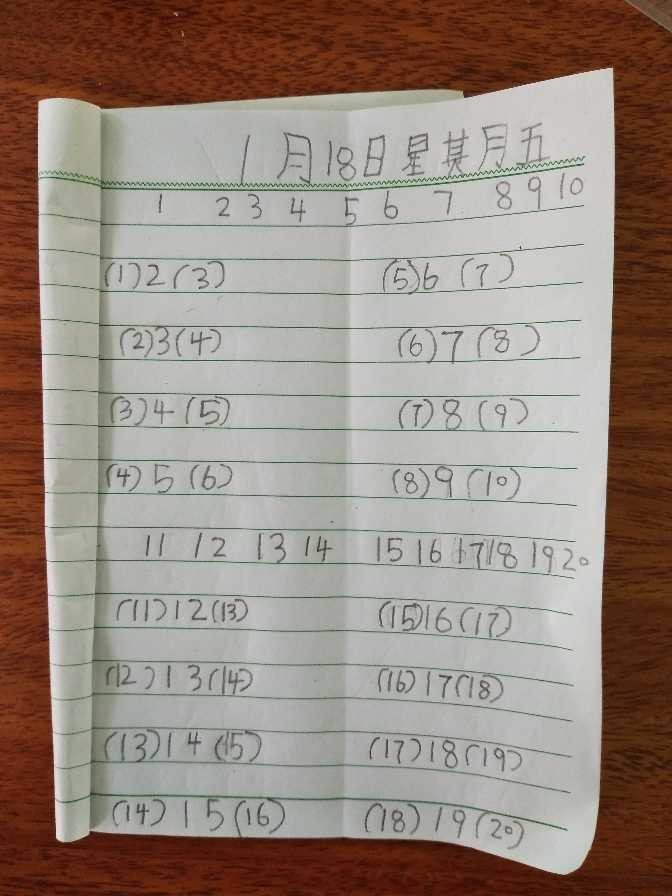 1月18日星其月五
1 2 3 4 5 6 7 8 9 10
(1)2(3) (5)6(7)
(2)3(4) (6)7(8)
(3)4(5) (7)8(9)
(4)5(6) (8)9(10)
11 12 13 14 15 16 17 18 19 20
(11)12(13) (15)16(17)
(12)13(14) (16)17(18)
(13)14(15) (17)18(19)
(14)15(16) (18)19(20)